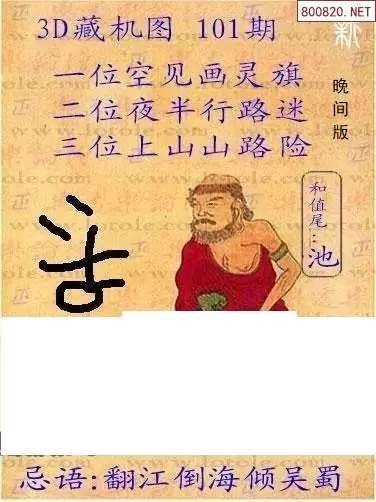 800820.NET
新
3D藏机图 101期
一位空见画灵旗
二位夜半行路迷
三位上山山路险
晚间版
和值尾:池
www.lotole.com
忌语:翻江倒海倾吴蜀